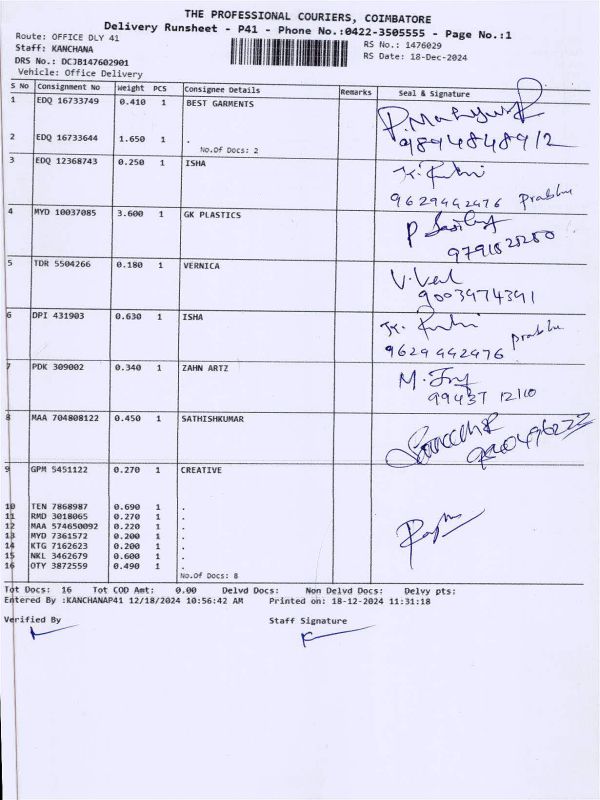 THE PROFESSIONAL COURIERS, COIMBATORE
Delivery Runsheet - P41 - Phone No.:0422-3505555 - Page No.:1
Route: OFFICE DLY 41 RS No.: 1476029
Staff: KANCHANA RS Date: 18-Dec-2024
DRS No.: DCJB147602901
Vehicle: Office Delivery
S No Consignment No Weight PCS Consignee Details Remarks Seal & Signature
1 EDQ 16733749 0.410 1 BEST GARMENTS
2 EDQ 16733644 1.650 1 . 9894848912
No.Of Docs: 2
3 EDQ 12368743 0.250 1 ISHA
9629442476 Prabhu
4 MYD 10037085 3.600 1 GK PLASTICS
5 TDR 5504266 0.180 1 VERNICA
9003974391
6 DPI 431903 0.630 1 ISHA
9629442476 prabhu
7 PDK 309002 0.340 1 ZAHN ARTZ
99437 12110
8 MAA 704808122 0.450 1 SATHISHKUMAR
9 GPM 5451122 0.270 1 CREATIVE
10 TEN 7868987 0.690 1 .
11 RMD 3018065 0.270 1 .
12 MAA 574650092 0.220 1 .
13 MYD 7361572 0.200 1 .
14 KTG 7162623 0.200 1 .
15 NKL 3462679 0.600 1 .
16 OTY 3872559 0.490 1 .
No.Of Docs: 8
Tot Docs: 16 Tot COD Amt: 0.00 Delvd Docs: Non Delvd Docs: Delvy pts:
Entered By :KANCHANAP41 12/18/2024 10:56:42 AM Printed on: 18-12-2024 11:31:18
Verified By Staff Signature